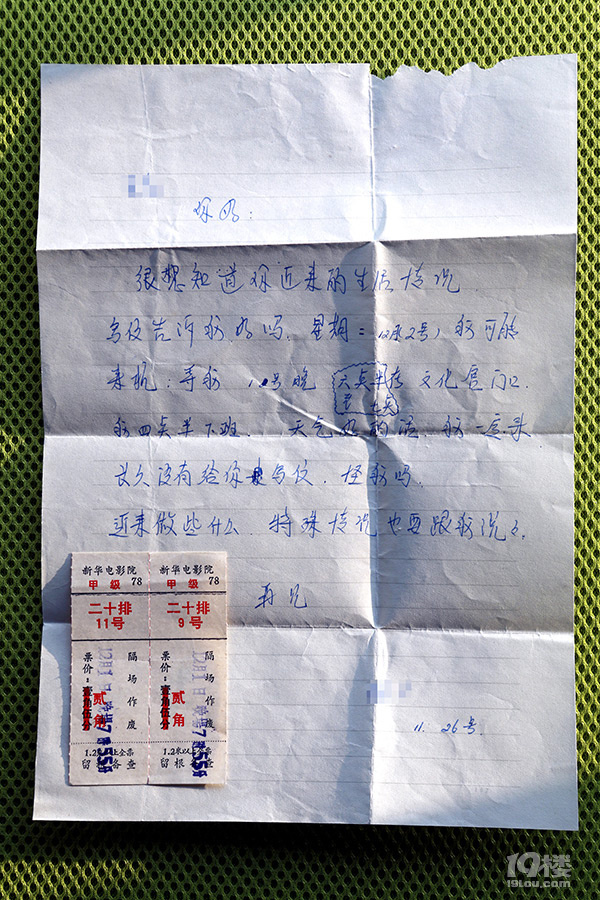 你好:
很想知道你近来的生活情况
写信告诉我好吗.星期=12月2号,我可能
来杭:等我1号晚 六点半在 文化宫门口.
至七点
我四点半下班. 天气好的话.我一定来.
长久没有给你写信.怪我吗.
近来做些什么.特殊情况也要跟我说说.
再见
11.26号.
新华电影院
甲级 78
二十排
11号
票价:壹角伍分
贰角
隔场作废
12月1日
7 55
1.2米以上全票
留根备查
新华电影院
甲级 78
二十排
9号
票价:壹角伍分
贰角
隔场作废
12月1日
7 55
1.2米以上全票
留根备查
19楼
19lou.com